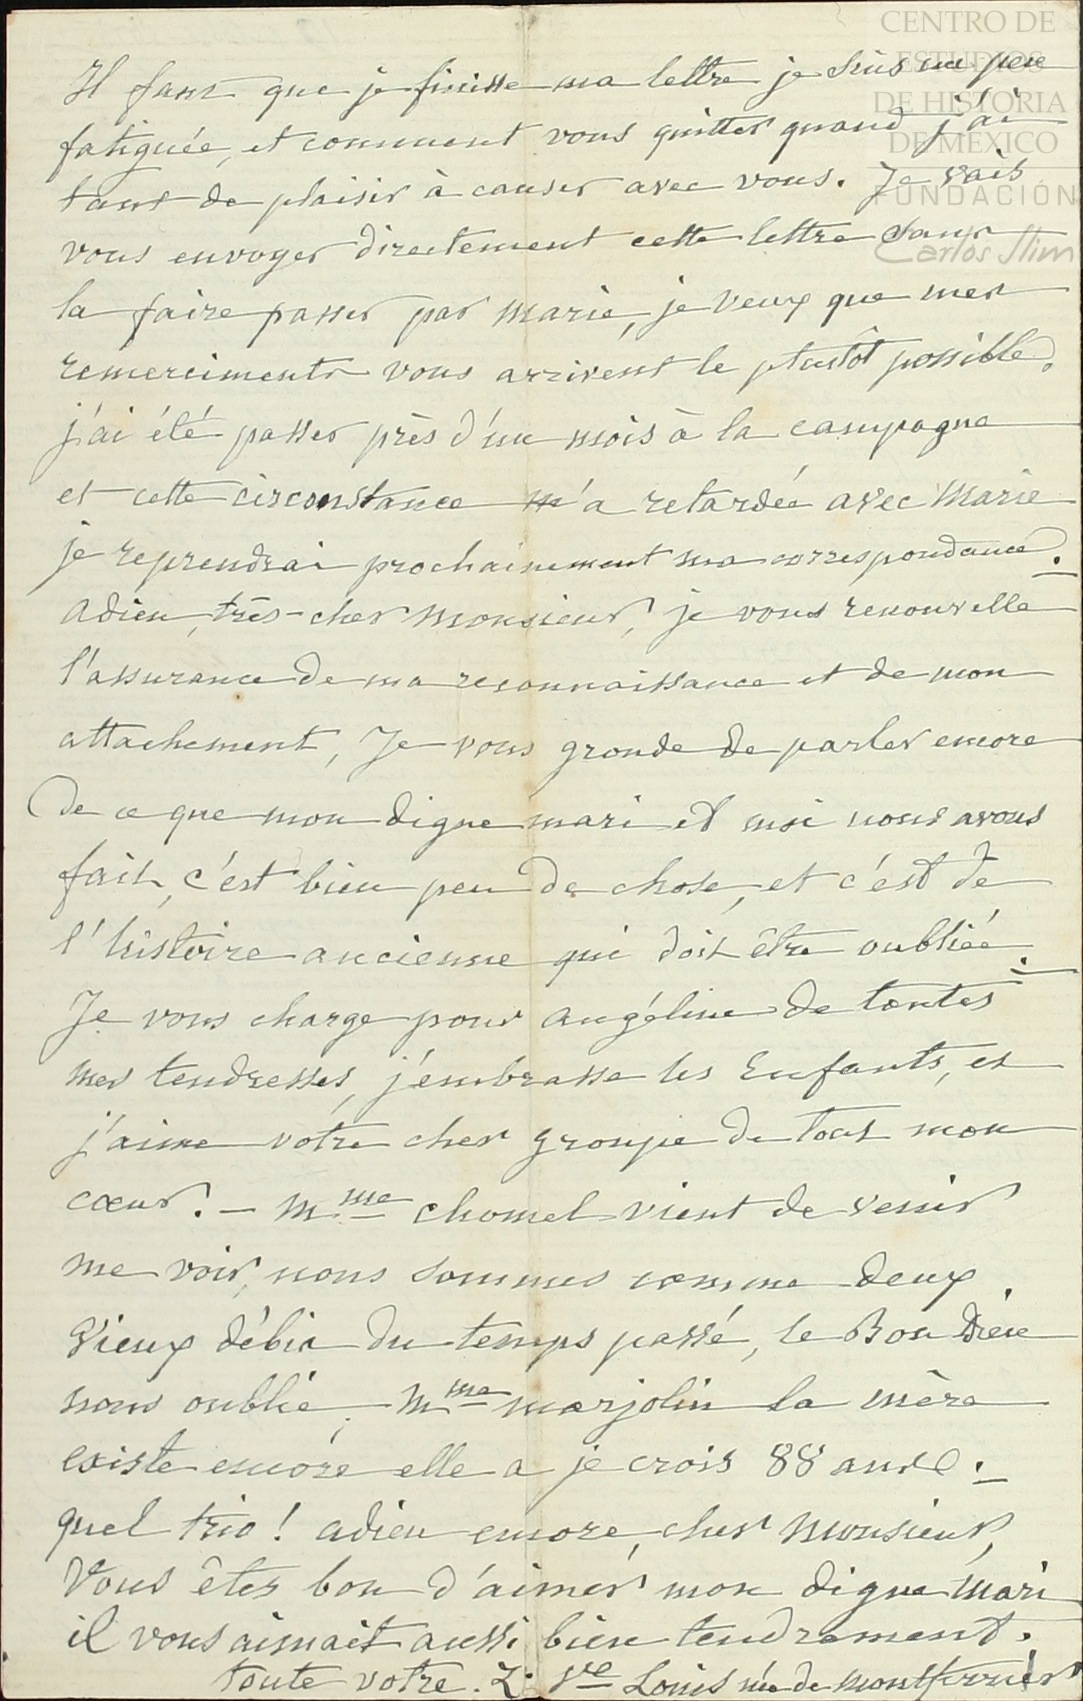 CENTRO DE
ESTUDIOS
DE HISTORIA
DE MÉXICO
FUNDACIÓN
Carlos Slim
Il faut que je finisse ma lettre je suis un peu
fatiguée, et comment vous quitter quand j'ai
tant de plaisir à causer avec vous. Je vais
vous envoyer directement cette lettre sans
la faire passer par Marie, je veux que mes
remerciments vous arrivent le plustôt possible,
j'ai été passer près d'un mois à la campagne
et cette circonstance m'a retardée avec Marie
je reprendrai prochainement ma correspondance.
Adieu, très-cher Monsieur, je vous renouvelle
l'assurance de ma reconnaissance et de mon
attachement, Je vous gronde de parler encore
de ce que mon digne mari et moi nous avons
fait, c'est bien peu de chose, et c'est de
l'histoire ancienne qui doit être oubliée.
Je vous charge pour Angéline de toutes
mes tendresses, j'embrasse les Enfants, et
j'aime votre cher groupe de tout mon
cœur. — Mme Chomel vient de venir
me voir, nous sommes comme deux
vieux débis du temps passé, le Bon Dieu
nous oublie, Mme Marjolin la mère
existe encore elle a je crois 88 ans.
quel trio! adieu encore, cher Monsieur,
Vous êtes bon d'aimer mon digne mari
il vous aimait aussi bien tendrement.
toute votre. Z. Vve Louis née de Montferrier